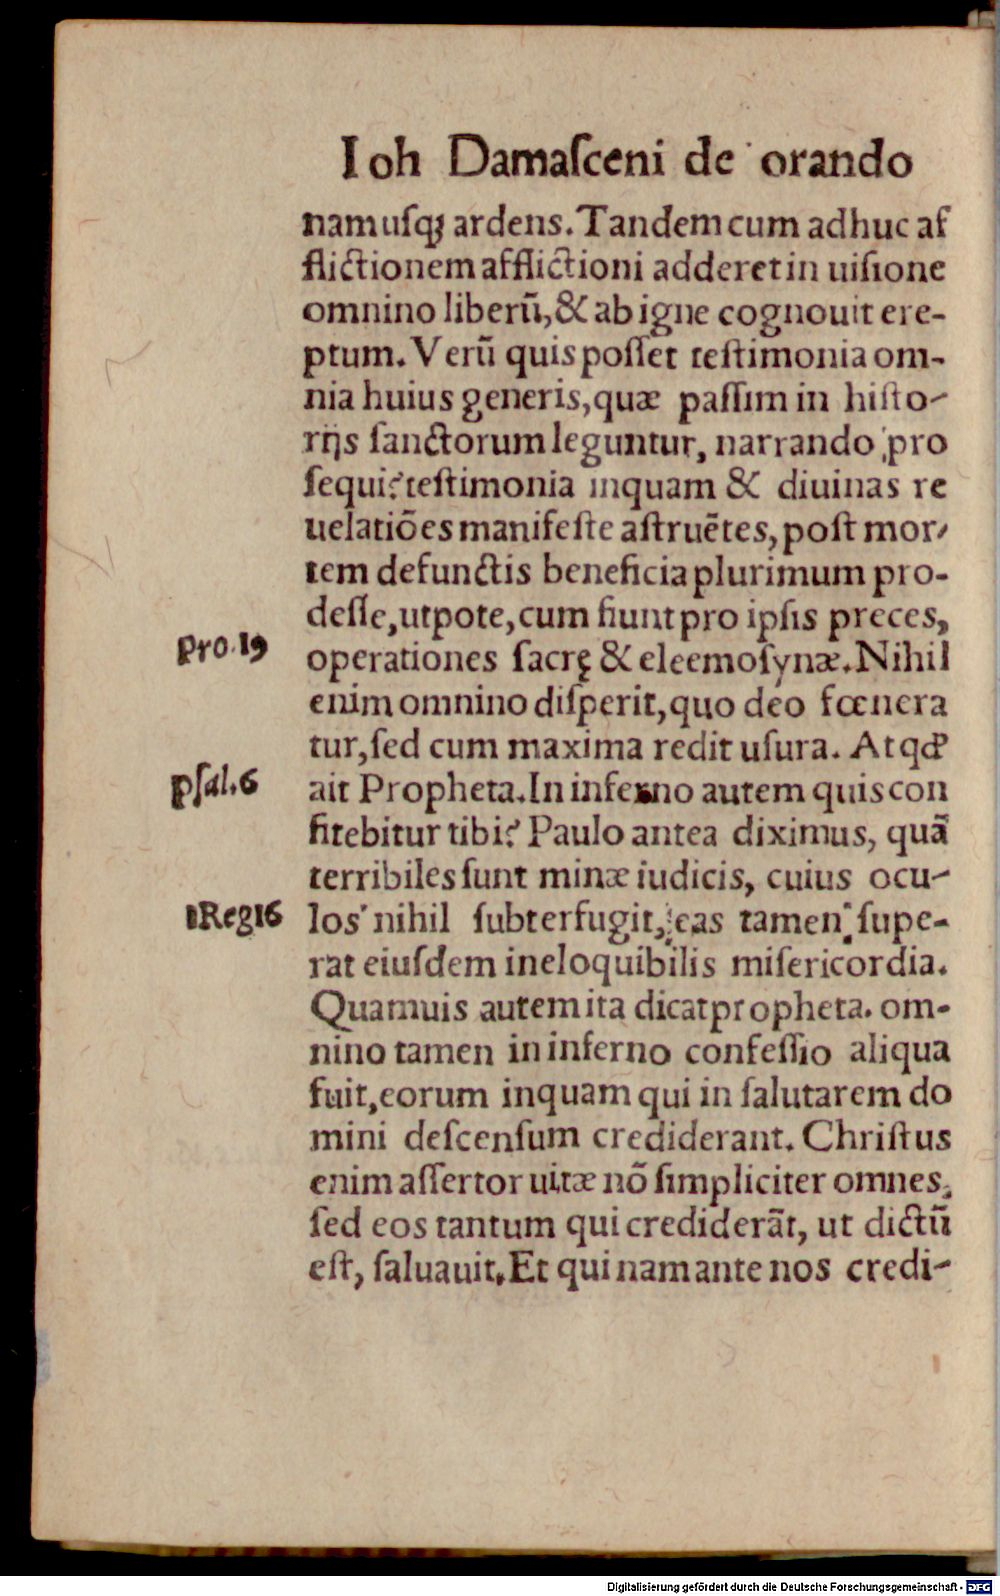 Ioh Damaſceni de orando
nam uſqꝫ ardens. Tandem cum adhuc af
flictionem afflictioni adderet in uiſione
omnino liberũ, & ab igne cognouit ere-
ptum. Verũ quis poſſet teſtimonia om-
nia huius generis, quæ paſſim in hiſto-
rijs ſanctorum leguntur, narrando pro
ſequi? teſtimonia inquam & diuinas re
uelatiões manifeſte aſtruẽtes, poſt mor-
tem defunctis beneficia plurimum pro-
deſſe, utpote, cum fiunt pro ipſis preces,
pro. 19
operationes ſacrę & eleemoſynæ. Nihil
enim omnino diſperit, quo deo fœnera
tur, ſed cum maxima redit uſura. At qđ
pſal. 6
ait Propheta. In inferno autem quis con
fitebitur tibi? Paulo antea diximus, quã
terribiles ſunt minæ iudicis, cuius ocu-
1Reg16
los nihil ſubterfugit, eas tamen ſupe-
rat eiuſdem ineloquibilis miſericordia.
Quamuis autem ita dicat propheta. om-
nino tamen in inferno confeſſio aliqua
fuit, eorum inquam qui in ſalutarem do
mini deſcenſum crediderant. Chriſtus
enim aſſertor uitæ nõ ſimpliciter omnes,
ſed eos tantum qui crediderãt, ut dictũ
eſt, ſaluauit. Et qui nam ante nos credi-
Digitalisierung gefördert durch die Deutsche Forschungsgemeinschaft - DFG